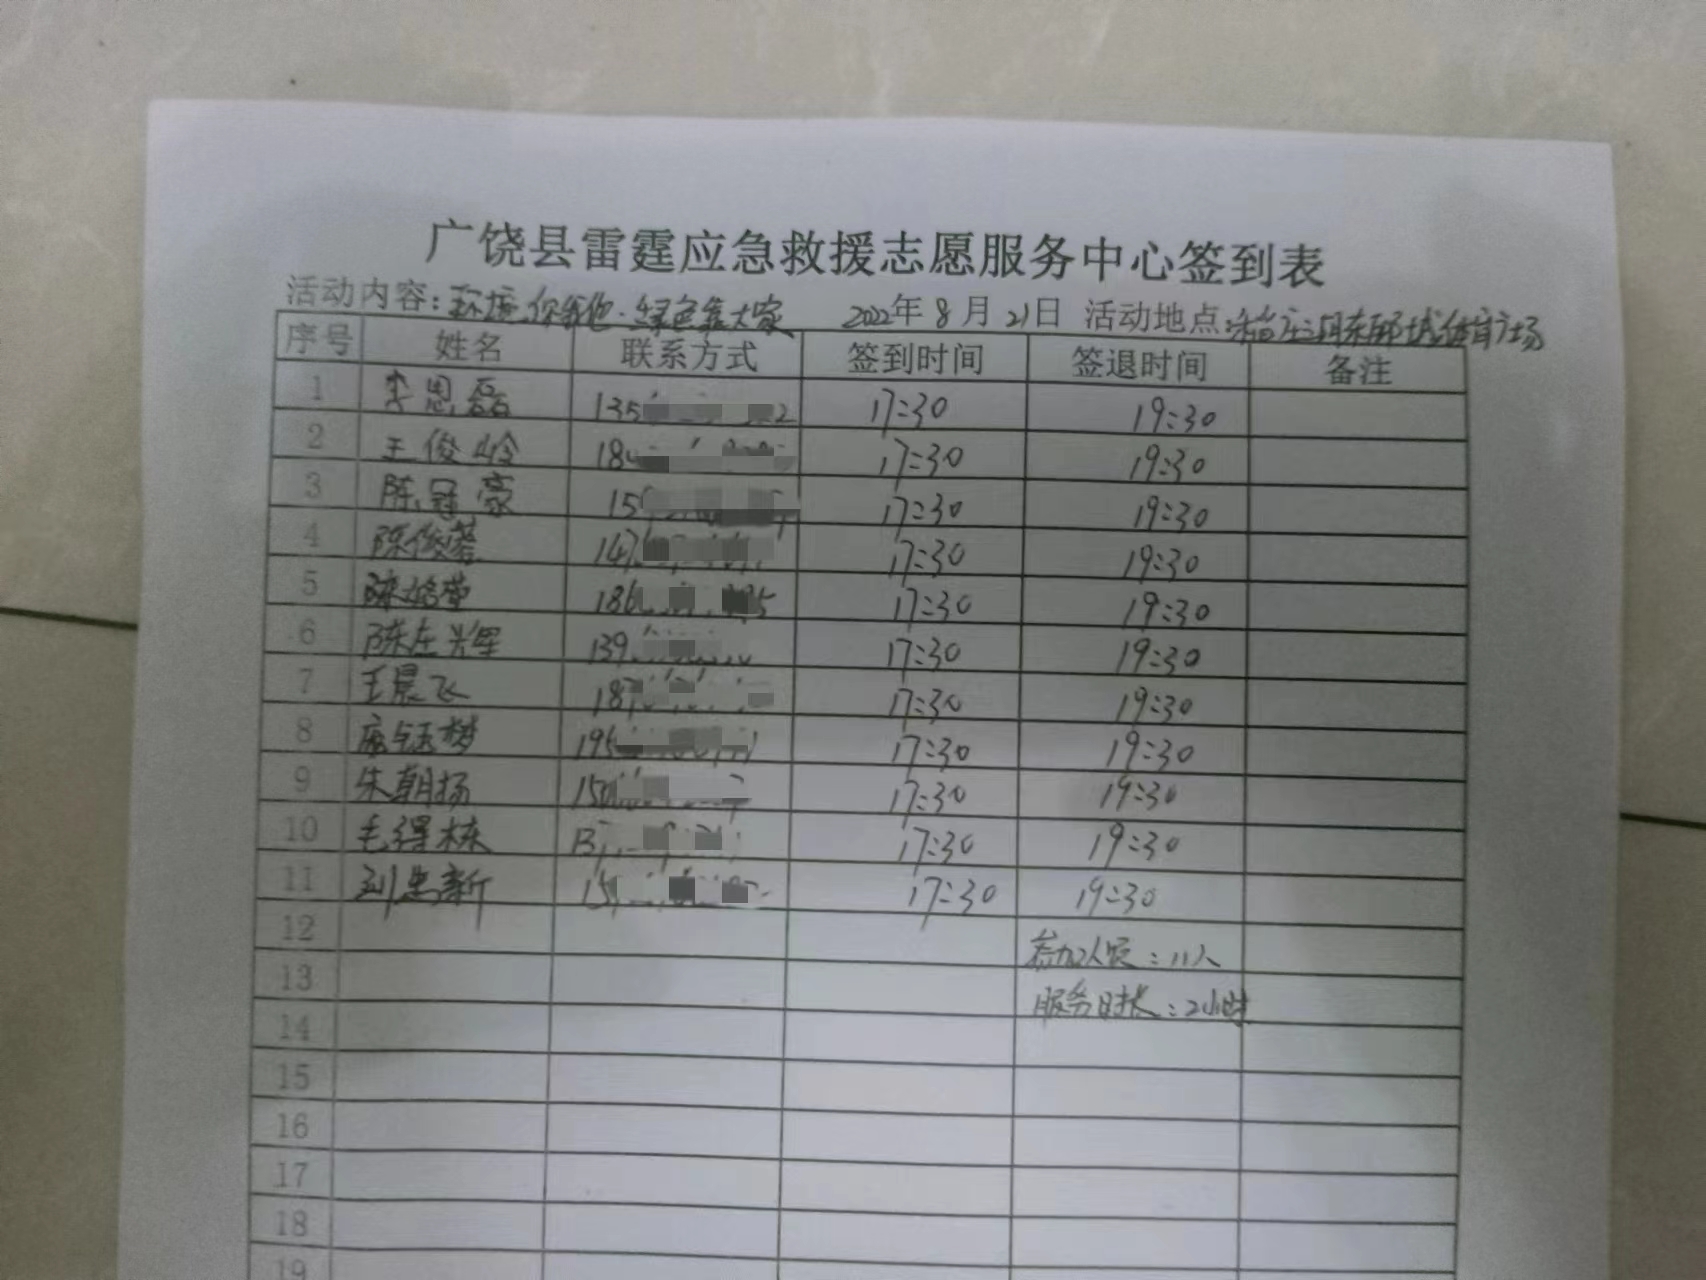 广饶县雷霆应急救援志愿服务中心签到表
活动内容:环境你我他·绿色靠大家 2022年8月21日 活动地点:
序号 姓名 联系方式 签到时间 签退时间 备注
1 李恩磊 135 2 17:30 19:30
2 王俊岭 18 17:30 19:30
3 陈冠豪 15 17:30 19:30
4 陈俊 147 17:30 19:30
5 186 35 17:30 19:30
6 陈左兴军 139 17:30 19:30
7 王晨飞 187 17:30 19:30
8 195 17:30 19:30
9 朱朝扬 150 17:30 19:30
10 毛得栋 17:30 19:30
11 刘忠新 15 17:30 19:30
12 参加人员:11人
13 服务时长:2小时
14
15
16
17
18
19